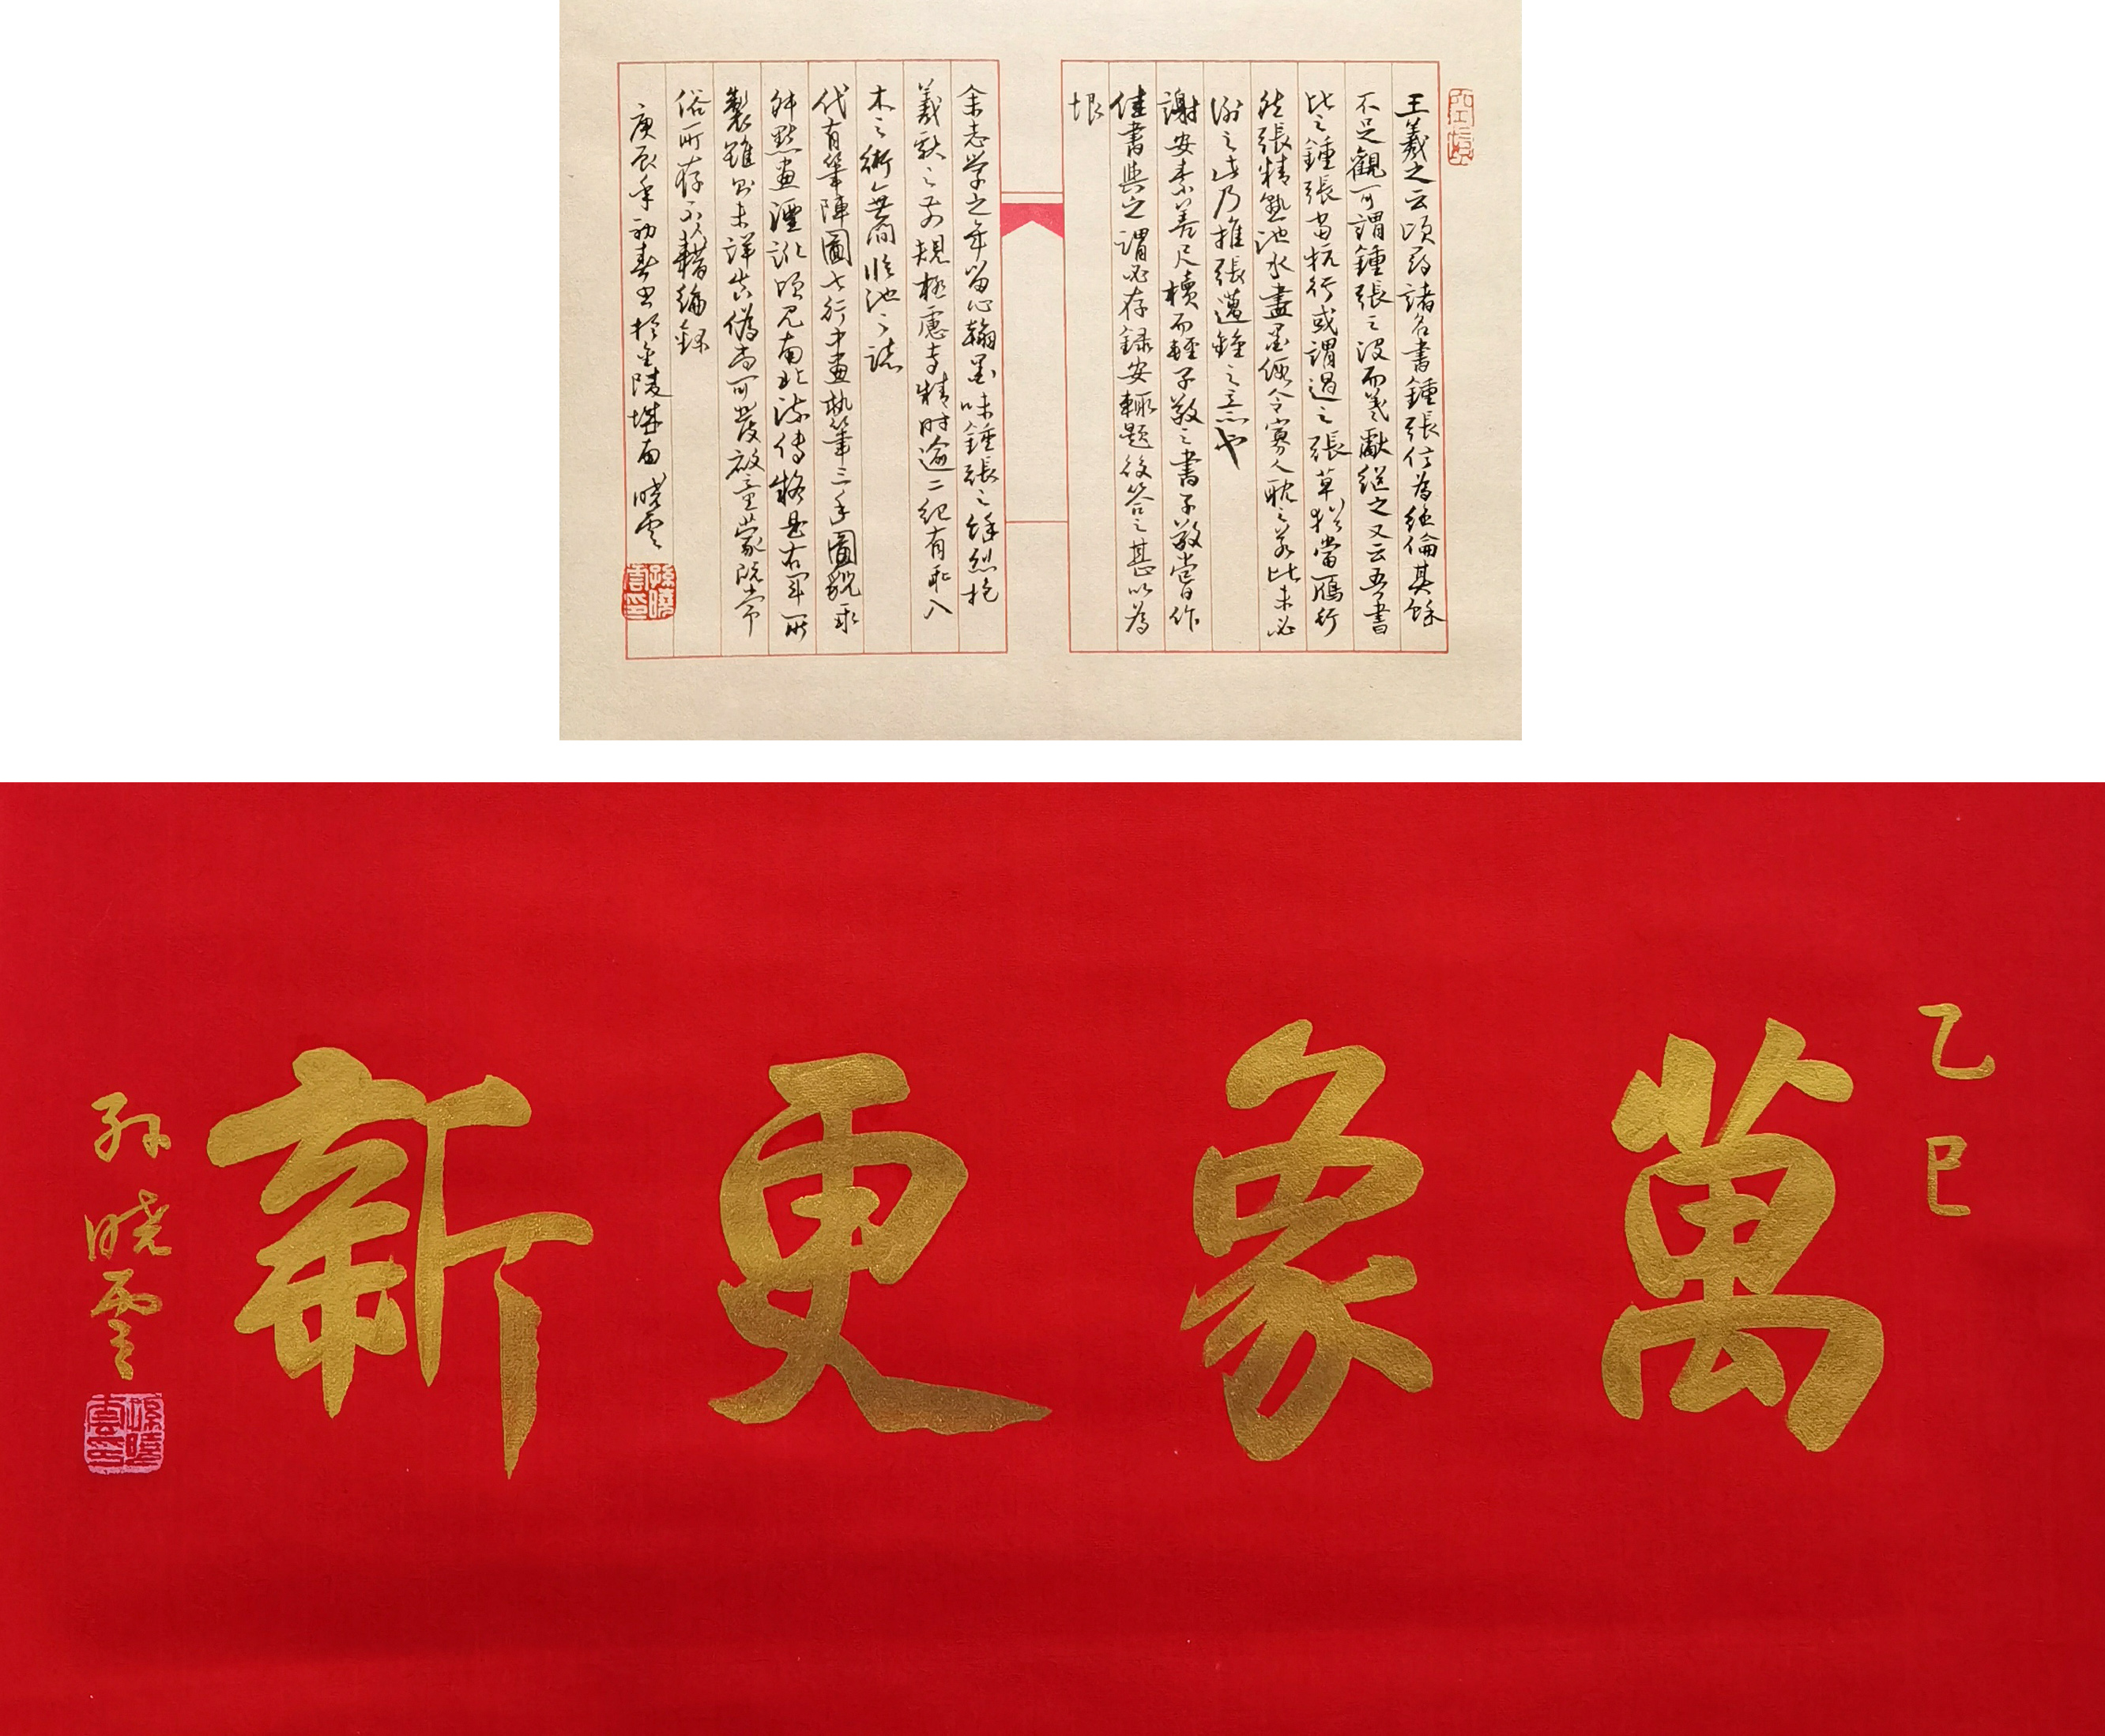 王羲之云頃尋諸名書鍾張信為絕倫其餘
不足觀可謂鍾張之沒而羲獻繼之又云吾書
比之鍾張當抗行或謂過之張草猶當鴈行
然張精熟池水盡墨假令寡人耽之若此未必
謝之此乃推張邁鍾之意也
謝安素善尺牘而輕子敬之書子敬嘗作
佳書與之謂必存錄安輒題後答之甚以為
恨
余志學之年留心翰墨味鍾張之餘烈挹
羲獻之前規極慮專精時逾二紀有乖入
木之術無間臨池之志
代有筆陣圖七行中畫執筆三手圖貌乖
舛點畫湮訛頃見南北流傳疑是右軍所
製雖則未詳真偽尚可發啟童蒙既常
俗所存不藉編錄
庚辰年初春書於金陵城南 曉雲
孫曉雲印
乙巳
萬象更新
孙晓雲
孫曉雲印